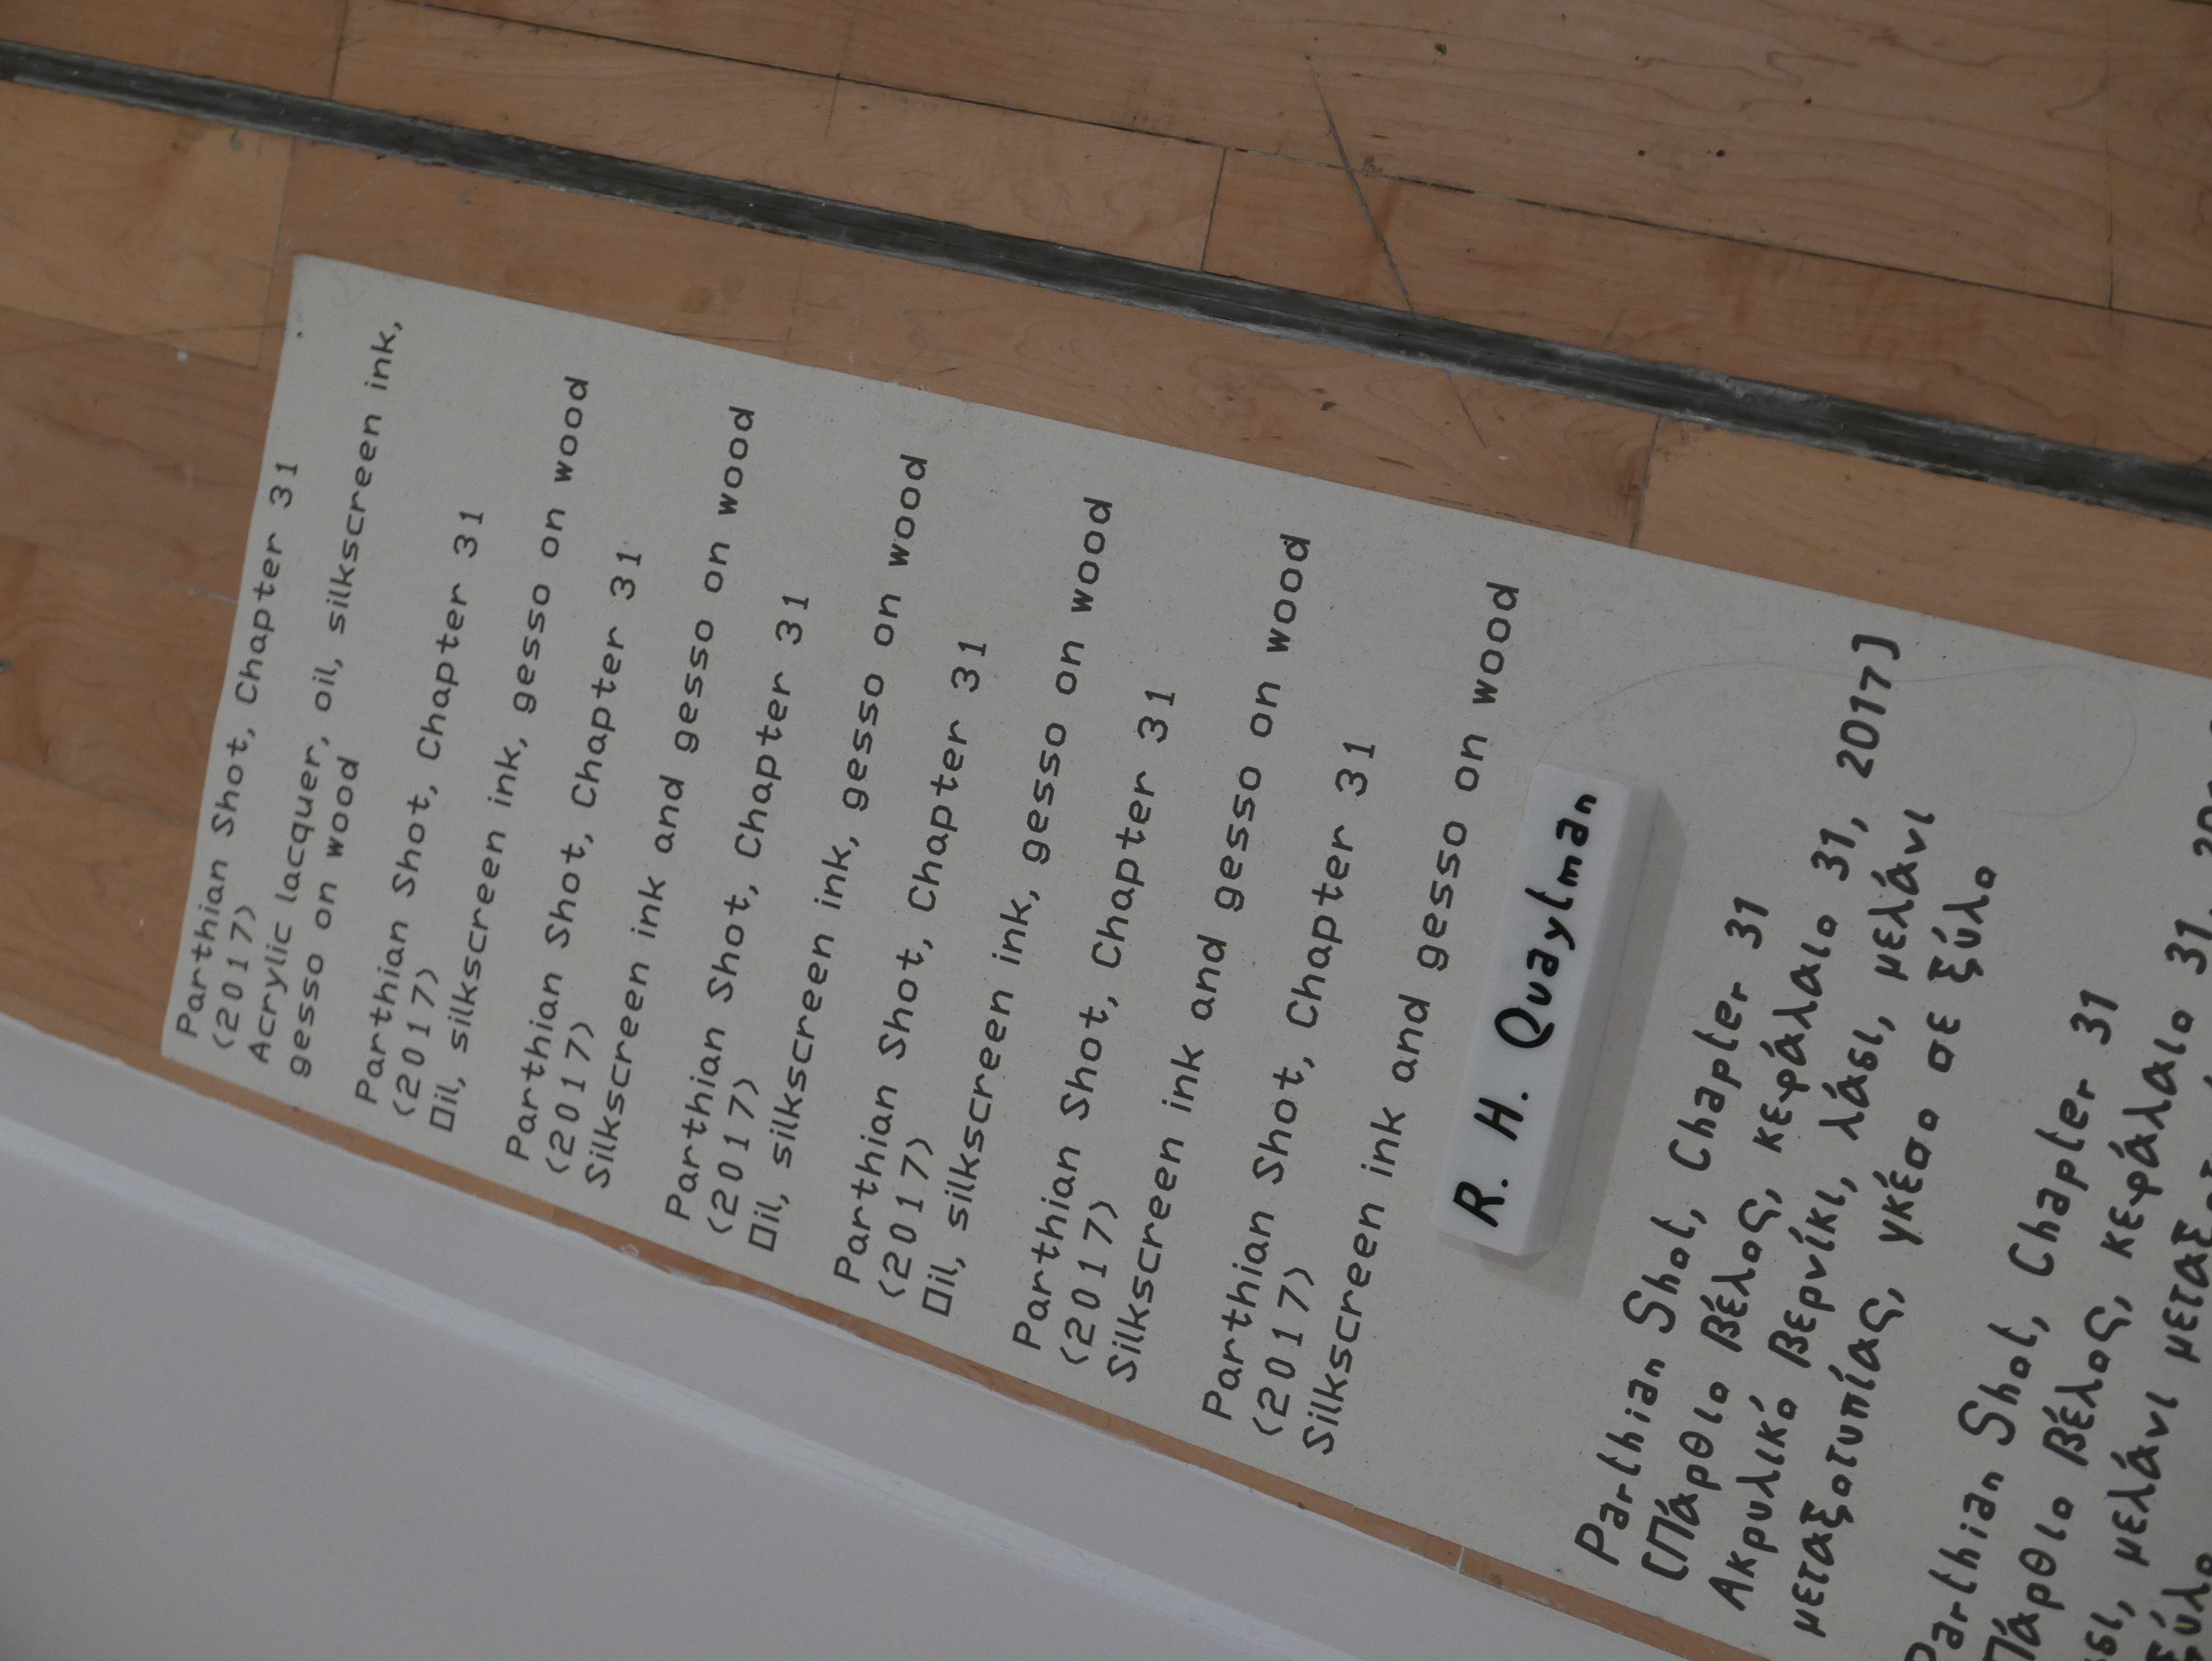 Parthian Shot, Chapter 31
(2017)
Acrylic lacquer, oil, silkscreen ink,
gesso on wood
Parthian Shot, Chapter 31
(2017)
Oil, silkscreen ink, gesso on wood
Parthian Shot, Chapter 31
(2017)
Silkscreen ink and gesso on wood
Parthian Shot, Chapter 31
(2017)
Oil, silkscreen ink, gesso on wood
Parthian Shot, Chapter 31
(2017)
Oil, silkscreen ink, gesso on wood
Parthian Shot, Chapter 31
(2017)
Silkscreen ink and gesso on wood
Parthian Shot, Chapter 31
(2017)
Silkscreen ink and gesso on wood
R. H. Quaytman
Parthian Shot, Chapter 31
[Πάρθιο βέλος, κεφάλαιο 31, 2017]
Ακρυλικό βερνίκι, λάδι, μελάνι
μεταξοτυπίας, γκέσο σε ξύλο
Parthian Shot, Chapter 31
Πάρθιο βέλος, κεφάλαιο 31
μελάνι